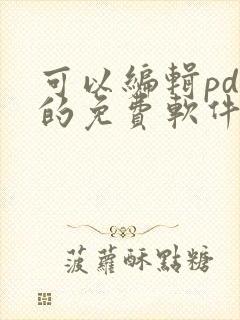 可以編輯pd
的免費軟件
菠蘿酥點糖